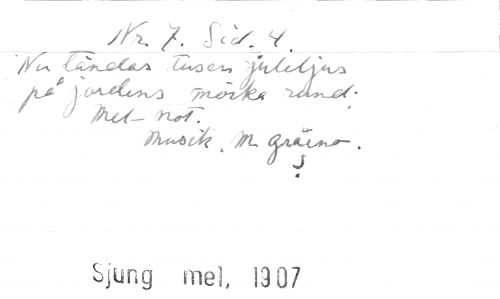 Nr. 7. Sid. 4.
Nu tändas tusen juleljus
på jordens mörka rund.
Mel- not.
Musik. M.
Sjung mel, 1907